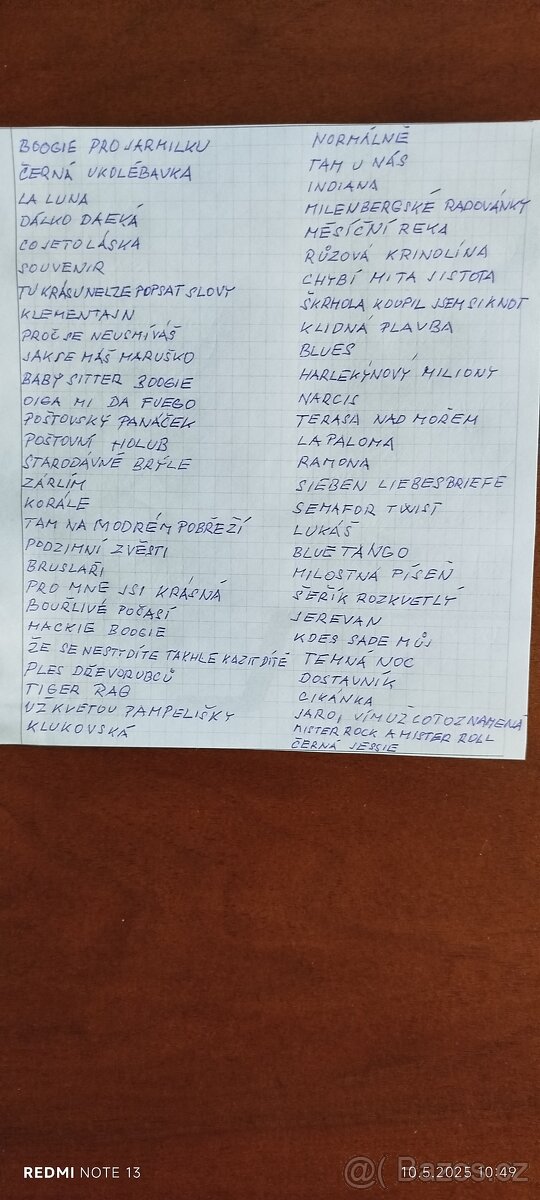 BOOGIE PRO JARMILKU
ČERNÁ UKOLÉBAVKA
LA LUNA
DÁLKO DAEKÁ
CO JE TO LÁSKA
SOUVENIR
TU KRÁSU NELZE POPSAT SLOVY
KLEMENTAJN
PROČ SE NEUSMÍVÁŠ
JAK SE MÁŠ MARUŠKO
BABY SITTER BOOGIE
OIGA MI DA FUEGO
POŠTOVSKÝ PANÁČEK
POŠTOVNÍ HOLUB
STARODÁVNÉ BRÝLE
ŽÁRLÍM
KORÁLE
TAM NA MODRÉM POBŘEŽÍ
PODZIMNÍ ZVĚSTI
BRUSLAŘI
PRO MNE JSI KRÁSNÁ
BOUŘLIVÉ POČASÍ
MACKIE BOOGIE
ŽE SE NESTYDÍTE TAKHLE KAZIT DÍTĚ
PLES DŘEVORUBCŮ
TIGER RAG
UŽ KVETOU PAMPELIŠKY
KLUKOVSKÁ
NORMÁLNĚ
TAM U NÁS
INDIANA
MILENBERGSKÉ RADOVÁNKY
MĚSÍČNÍ ŘEKA
RŮŽOVÁ KRINOLÍNA
CHYBÍ MI TA JISTOTA
ŠKRHOLA KOUPIL JSEM SI KNOT
KLIDNÁ PLAVBA
BLUES
HARLEKÝNOVÝ MILIONY
NARCIS
TERASA NAD MOŘEM
LA PALOMA
RAMONA
SIEBEN LIEBESBRIEFE
SEMAFOR TWIST
LUKÁŠ
BLUE TANGO
MILOSTNÁ PÍSEŇ
ŠEŘÍK ROZKVETLÝ
JEREVAN
KDES SADE MŮJ
TEMNÁ NOC
DOSTAVNÍK
CIKÁNKA
JARO, VÍM UŽ CO TO ZNAMENÁ
MISTER ROCK A MISTER ROLL
ČERNÁ JESSIE
REDMI NOTE 13
10.5.2025 10:49
@( Bazos.cz